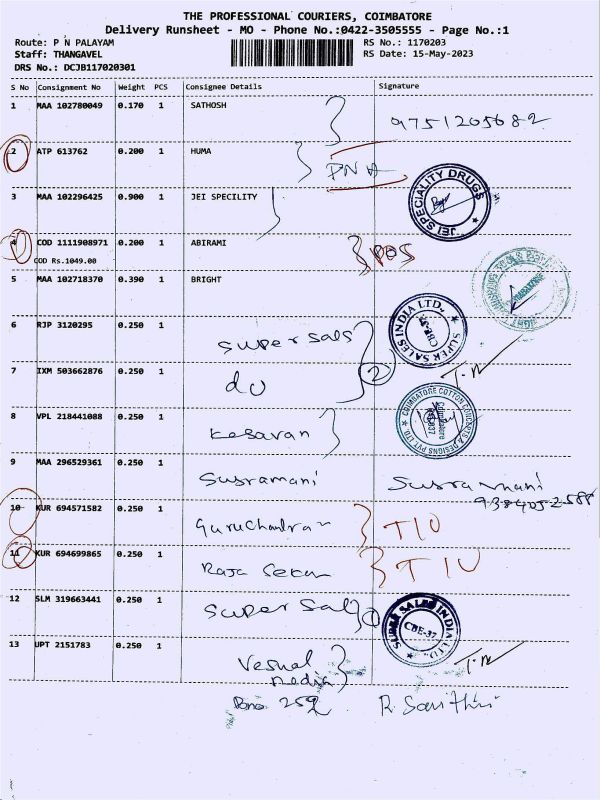 THE PROFESSIONAL COURIERS, COIMBATORE
Delivery Runsheet - MO - Phone No.:0422-3505555 - Page No.:1
Route: P N PALAYAM
RS No.: 1170203
Staff: THANGAVEL
RS Date: 15-May-2023
DRS No.: DCJB117020301
S No Consignment No Weight PCS Consignee Details Signature
1 MAA 102780049 0.170 1 SATHOSH 9751205682
2 ATP 613762 0.200 1 HUMA PNA
3 MAA 102296425 0.900 1 JEI SPECILITY JEI SPECIALITY DRUGS
4 COD 1111908971 0.200 1 ABIRAMI
COD Rs.1049.00
5 MAA 102718370 0.390 1 BRIGHT
6 RJP 3120295 0.250 1 super sals SUPER SALES INDIA LTD., CBE-37
7 IXM 503662876 0.250 1 do 2 T.N
8 VPL 218441088 0.250 1 Kesavan COIMBATORE COTTON CONCEPTS & DESIGNS PVT. LTD. Coimbatore 641037
9 MAA 296529361 0.250 1 Susramani Susramani
9384052588
10 KUR 694571582 0.250 1 Guruchandran TIU
11 KUR 694699865 0.250 1 Raja Sekar TIU
12 SLM 319663441 0.250 1 super Sals SUPER SALES INDIA LTD. CBE-37
13 UPT 2151783 0.250 1 media T.N
252 R. Savithri